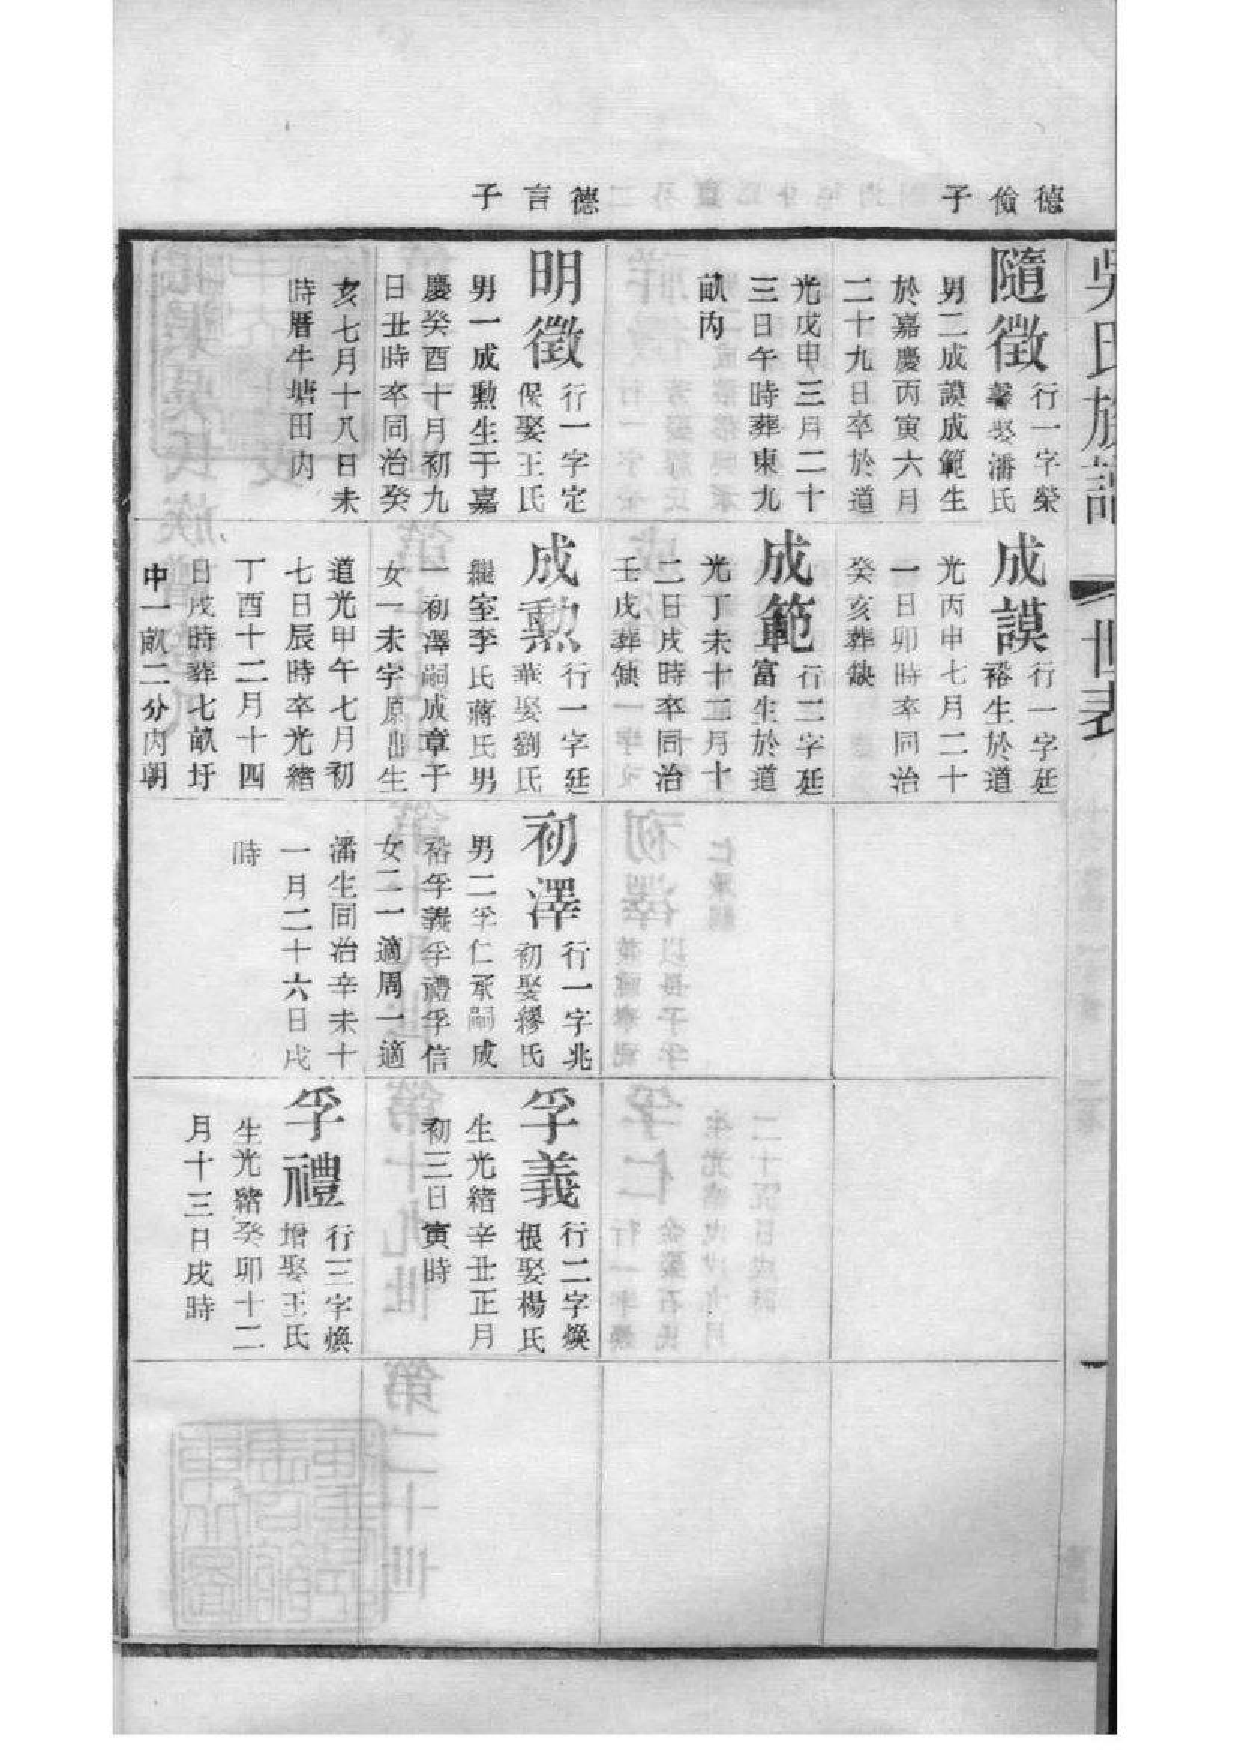 吳氏族譜 世表
德儉子
隨徵
行一字榮
馨娶潘氏
男二成謨成範生
於嘉慶丙寅六月
二十九日卒於道
光戊申三月二十
三日午時葬東九
畝內
德言子
明徵
行一字定
保娶王氏
男一成勲生于嘉
慶癸酉十月初九
日丑時卒同治癸
亥七月十八日未
時曆牛塘田內
成謨
行一字廷
裕生於道
光丙申七月二十
一日卯時卒同治
癸亥葬缺
成範
行二字廷
富生於道
光丁未十二月十
二日戌時卒同治
壬戌葬缺
成勲
行一字廷
華娶劉氏
繼室李氏蔣氏男
一初澤嗣成章子
女一未字原出生
道光甲午七月初
七日辰時卒光緒
丁酉十二月十四
日戌時葬七畝圩
中一畝二分內朝
初澤
行一字兆
初娶繆氏
男二孚仁承嗣成
裕孚義孚禮孚信
女二一適周一適
潘生同治辛未十
一月二十六日戌
時
孚義
行二字煥
根娶楊氏
生光緒辛丑正月
初三日寅時
孚禮
行三字煥
增娶王氏
生光緒癸卯十二
月十三日戌時